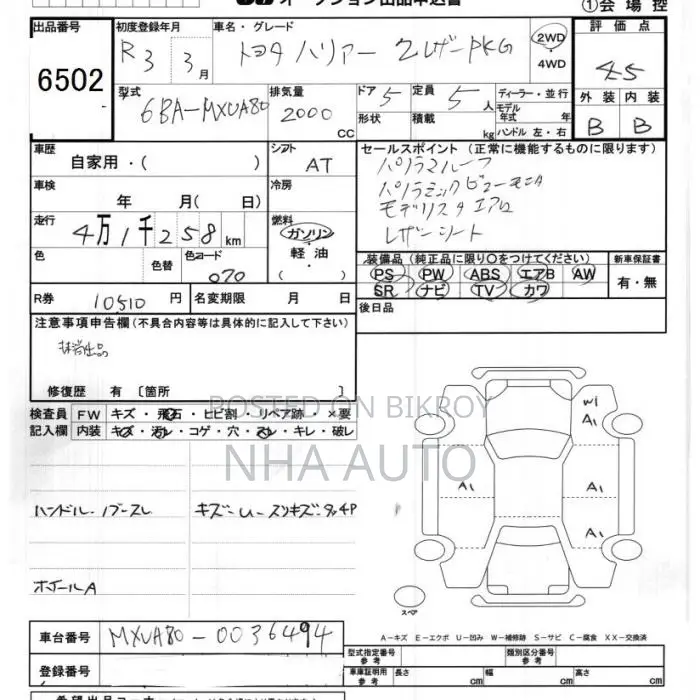 オークション出品申込書
①会場控
出品番号
6502
初度登録年月
R3 3月
車名・グレード
トヨタ ハリアー ZレザーPKG
2WD
4WD
評価点
4.5
外装 内装
B B
型式
6BA-MXUA80
排気量
2000
CC
ドア
5
形状
定員
5人
積載
kg
ディーラー・並行
モデル年式 年
ハンドル 左・右
車歴
自家用・( )
シフト
AT
セールスポイント (正常に機能するものに限ります)
パノラマルーフ
パノラミックビューモニタ
モデリスタエアロ
レザーシート
車検
年 月( 日)
冷房
走行
4万1千258km
燃料
ガソリン
軽油
・
( )
色
色替
色コード
070
装備品 (純正品に限り○をつけてください)
PS PW ABS エアB AW
SR ナビ TV カワ
新車保証書
有・無
R券 10510円
名変期限 月 日
後日品
注意事項申告欄 (不具合内容等は具体的に記入して下さい)
修復歴 有〔箇所 〕
検査員記入欄
FW キズ・飛石・ヒビ割・リペア跡・×要
内装 キズ・汚レ・コゲ・穴・スレ・キレ・破レ
POSTED ON BIKROY
NHA AUTO
W1
A1
A1
A1
A1
スペア
ホイールA
A-キズ E-エクボ U-凹み W-補修跡 S-サビ C-腐食 XX-交換済
車台番号
MXUA80-0036494
登録番号
型式指定番号
参考
類別区分番号
参考
車庫証明用
参考
長さ cm
幅 cm
高さ cm